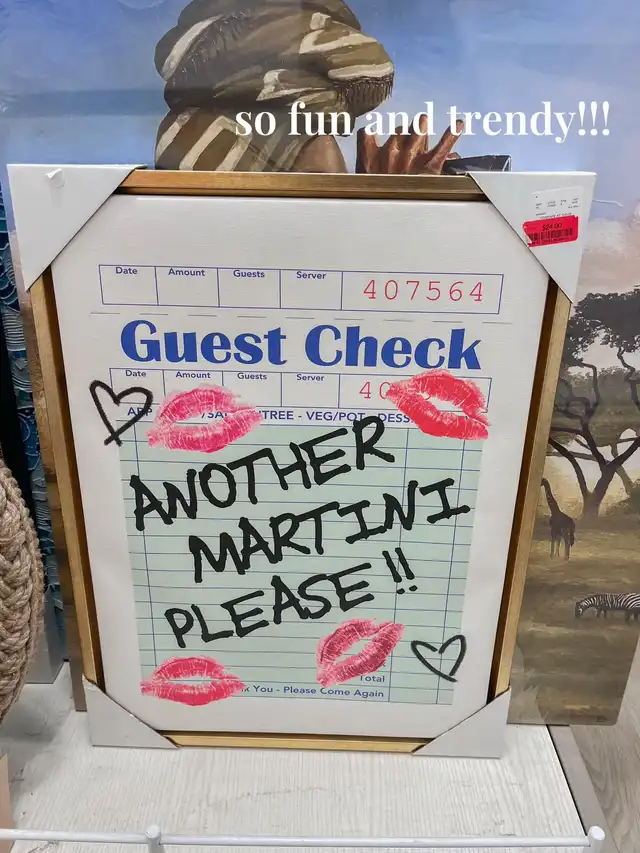 so fun and trendy!!!
$24.00
Date Amount Guests Server
407564
Guest Check
Date Amount Guests Server
40
TREE - VEG/POT - DESS
ANOTHER
MARTINI
PLEASE!!
Total
You - Please Come Again